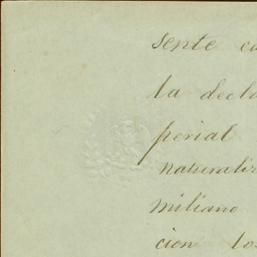 sente ca
la decla
perial
naturaliz
miliano
cion los